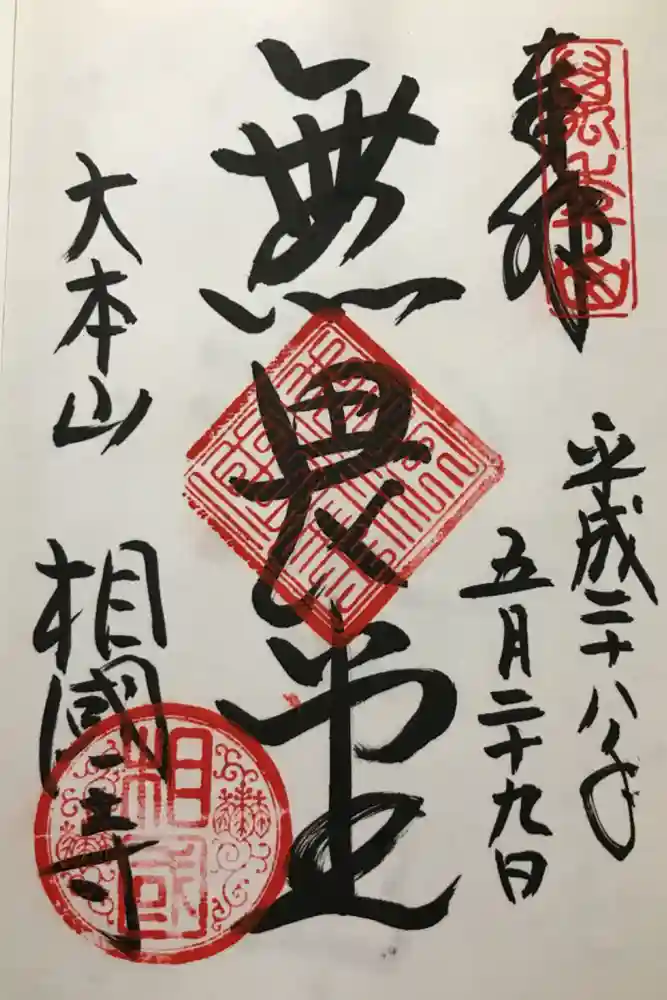 奉拝
平成二十八年
五月二十九日
無畏堂
大本山
相國寺
相國